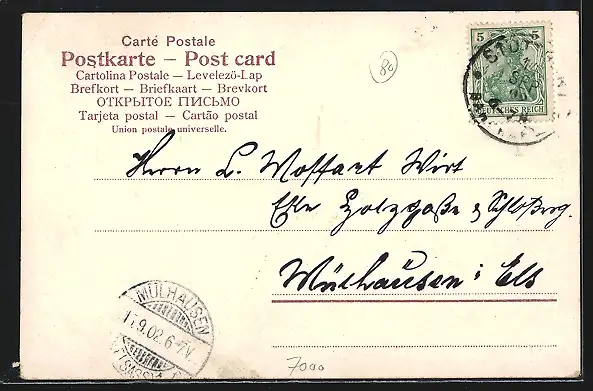 Carte Postale
Postkarte — Post card
Cartolina Postale — Levelező-Lap
Brefkort — Briefkaart — Brevkort
ОТКРЫТОЕ ПИСЬМО
Tarjeta postal — Cartão postal
Union postale universelle.
80
5 5
DEUTSCHES REICH
STUT
Herrn L. Moffart Wirt
Ecke Holzgaße & Schloßerg.
Mülhausen i Els
MÜLHAUSEN
9.02.6-7V.
7000